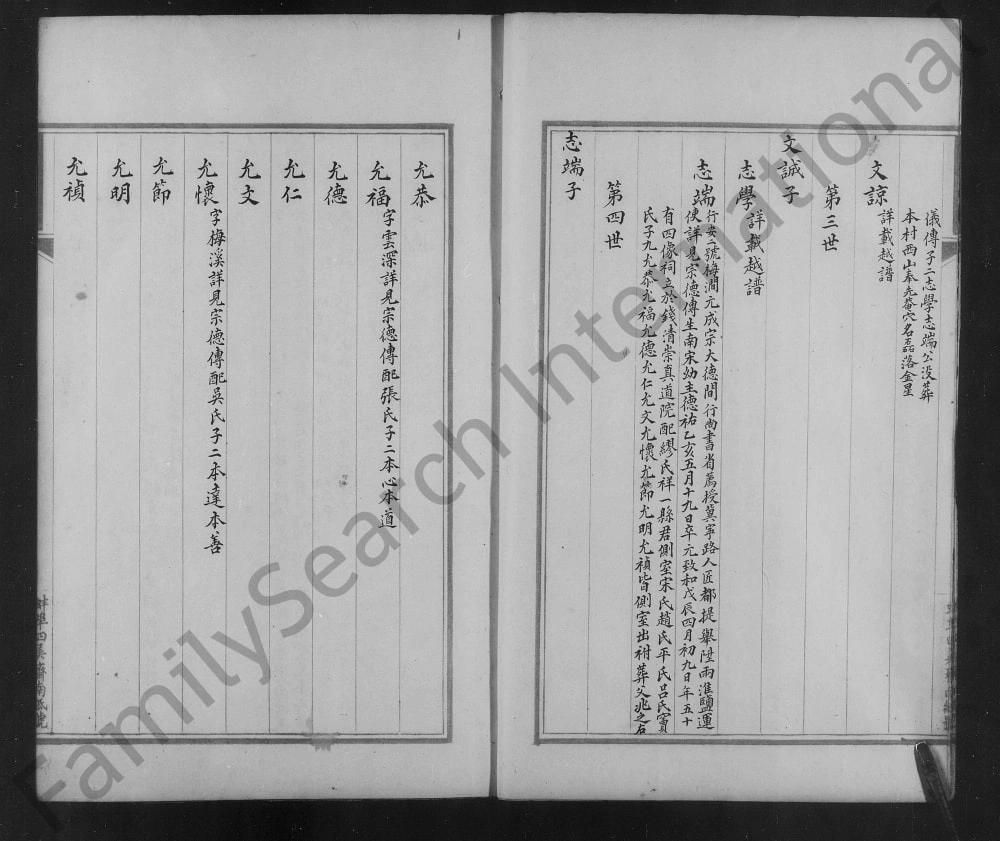 儀傳子二志學志端公沒葬
本村西山奉先菴穴名磊落金星
文諒
詳載越譜
第三世
文誠子
志學詳載越譜
志端行安二號梅澗元成宗大德間行尚書省薦授冀寧路人匠都提舉陞兩淮鹽運
使詳見宗德傳生南宋幼主德祐乙亥五月十九日卒元致和戊辰四月初九日年五十
有四像祠立於錢清崇真道院配繆氏祥一縣君側室宋氏趙氏平氏呂氏竇
氏子九允恭允福允德允仁允文允懷允節允明允禎皆側室出祔葬父兆之右
第四世
志端子
允恭
允福字雲深詳見宗德傳配張氏子二本心本道
允德
允仁
允文
允懷字梅溪詳見宗德傳配吳氏子二本達本善
允節
允明
允禎
FamilySearch International